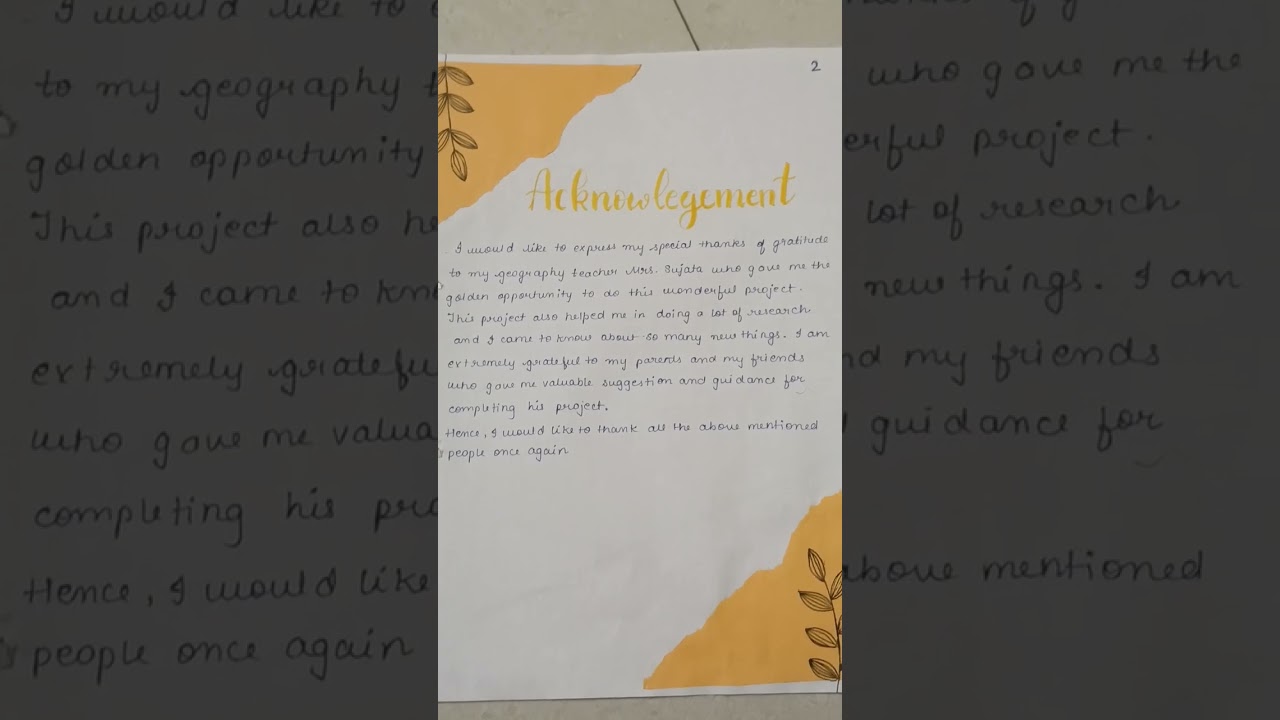 2
Acknowlegement
I would like to express my special thanks of gratitude
to my geography teacher Mrs. Sujata who gave me the
golden opportunity to do this wonderful project.
This project also helped me in doing a lot of research
and I came to know about so many new things. I am
extremely grateful to my parents and my friends
who gave me valuable suggestion and guidance for
completing his project.
Hence, I would like to thank all the above mentioned
people once again